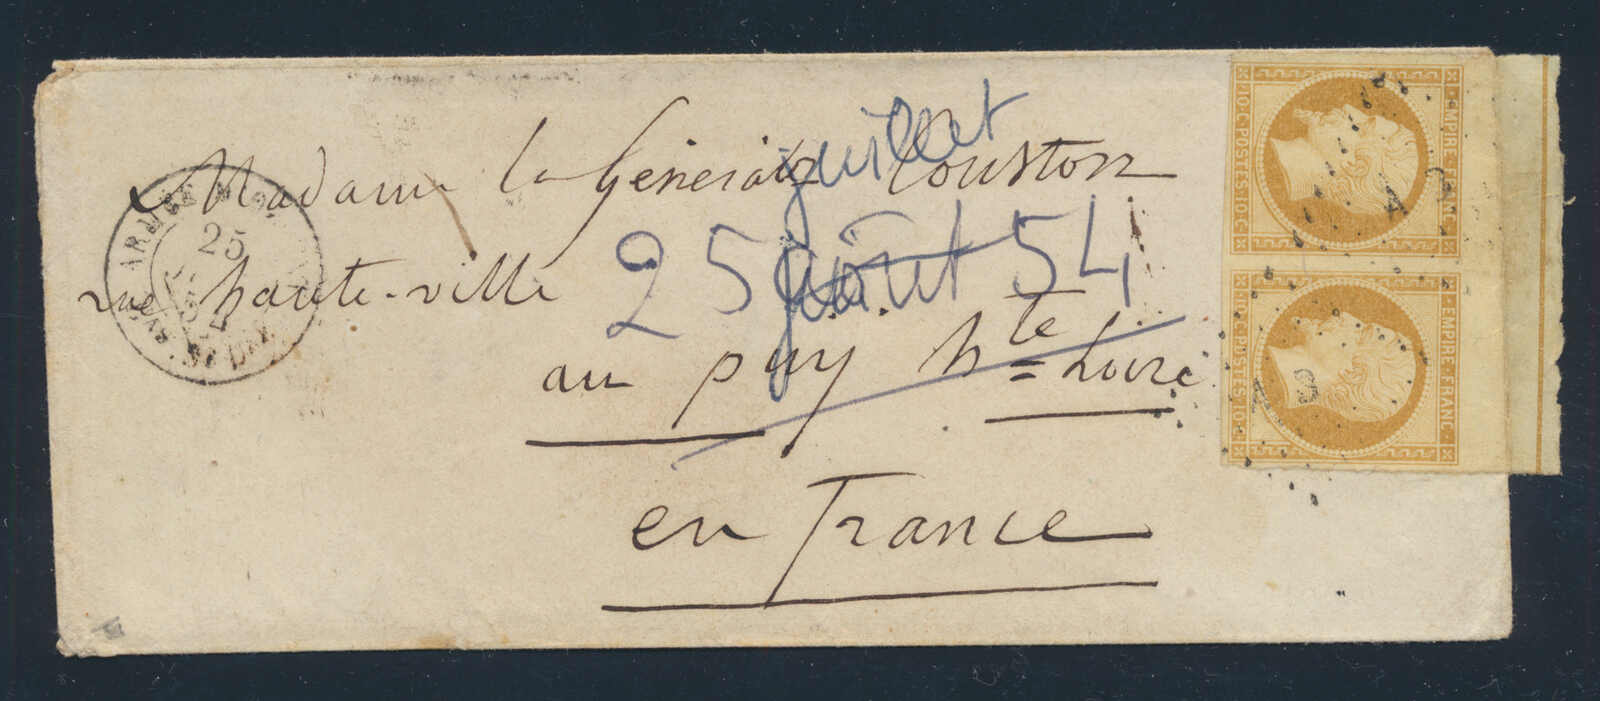 Madame la Générale Couston
rue haute-ville
au puy hte Loire
en France
juillet
25 août 54
25
EMPIRE · FRANC ·
10 · C · POSTES · 10 · C ·
EMPIRE · FRANC ·
10 · C · POSTES · 10 · C ·